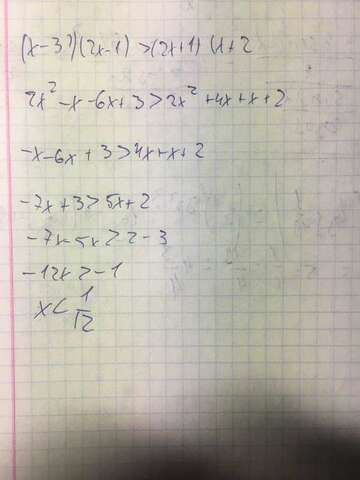 (x-3)(2x-1)>(2x+1)(x+2
2x²-x-6x+3>2x²+4x+x+2
-x-6x+3>4x+x+2
-7x+3>5x+2
-7x-5x>2-3
-12x>-1
x<1/12